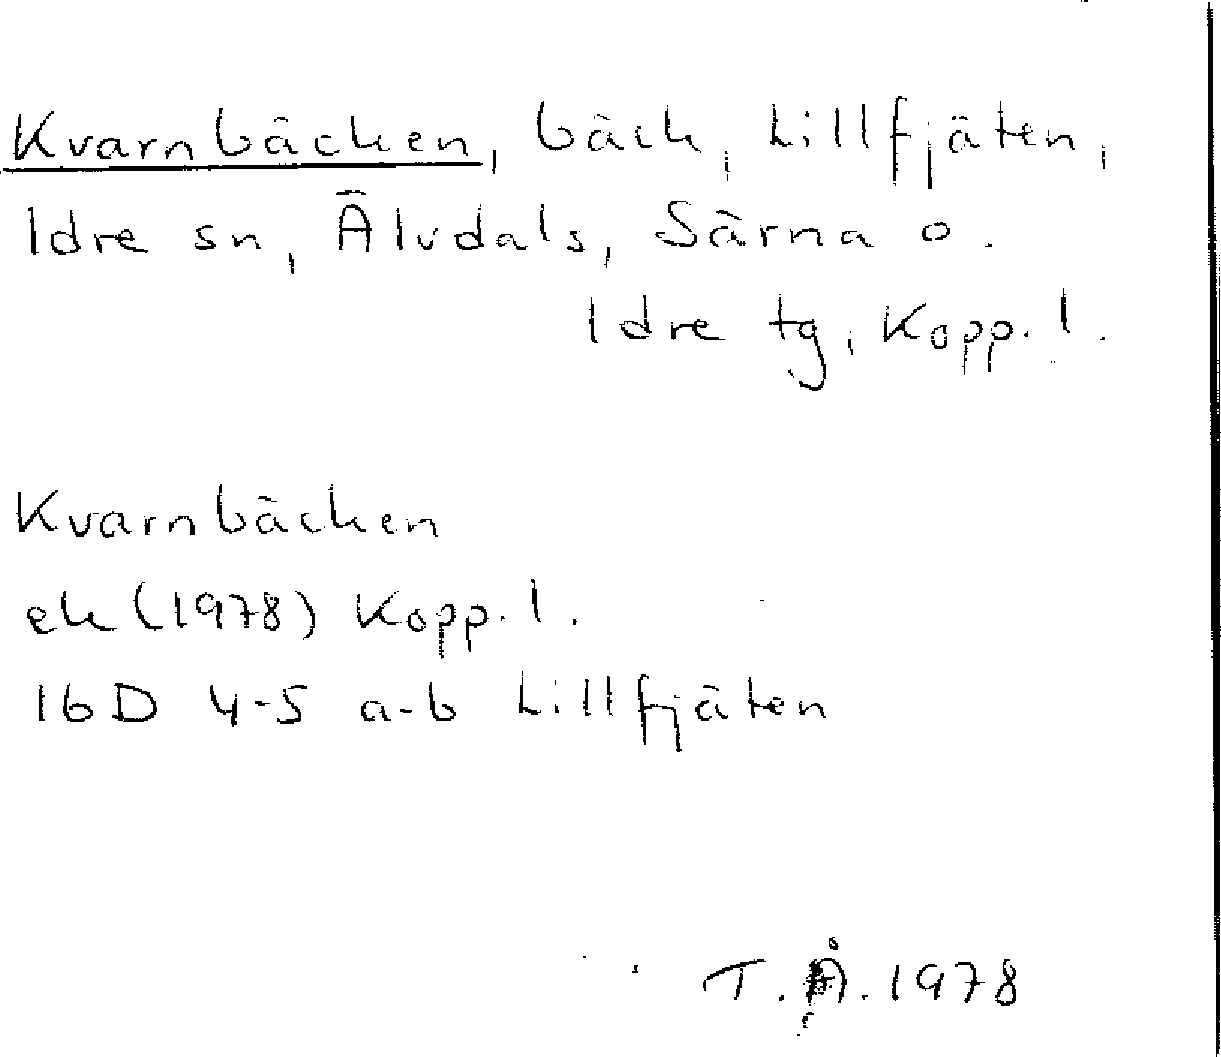 Kvarnbäcken, bäck, Lillfjäten,
Idre sn, Älvdals, Särna o.
Idre tg, Kopp. l.
Kvarnbäcken
ek (1978) Kopp. l.
16D 4-5 a-b Lillfjäten
T. Å. 1978